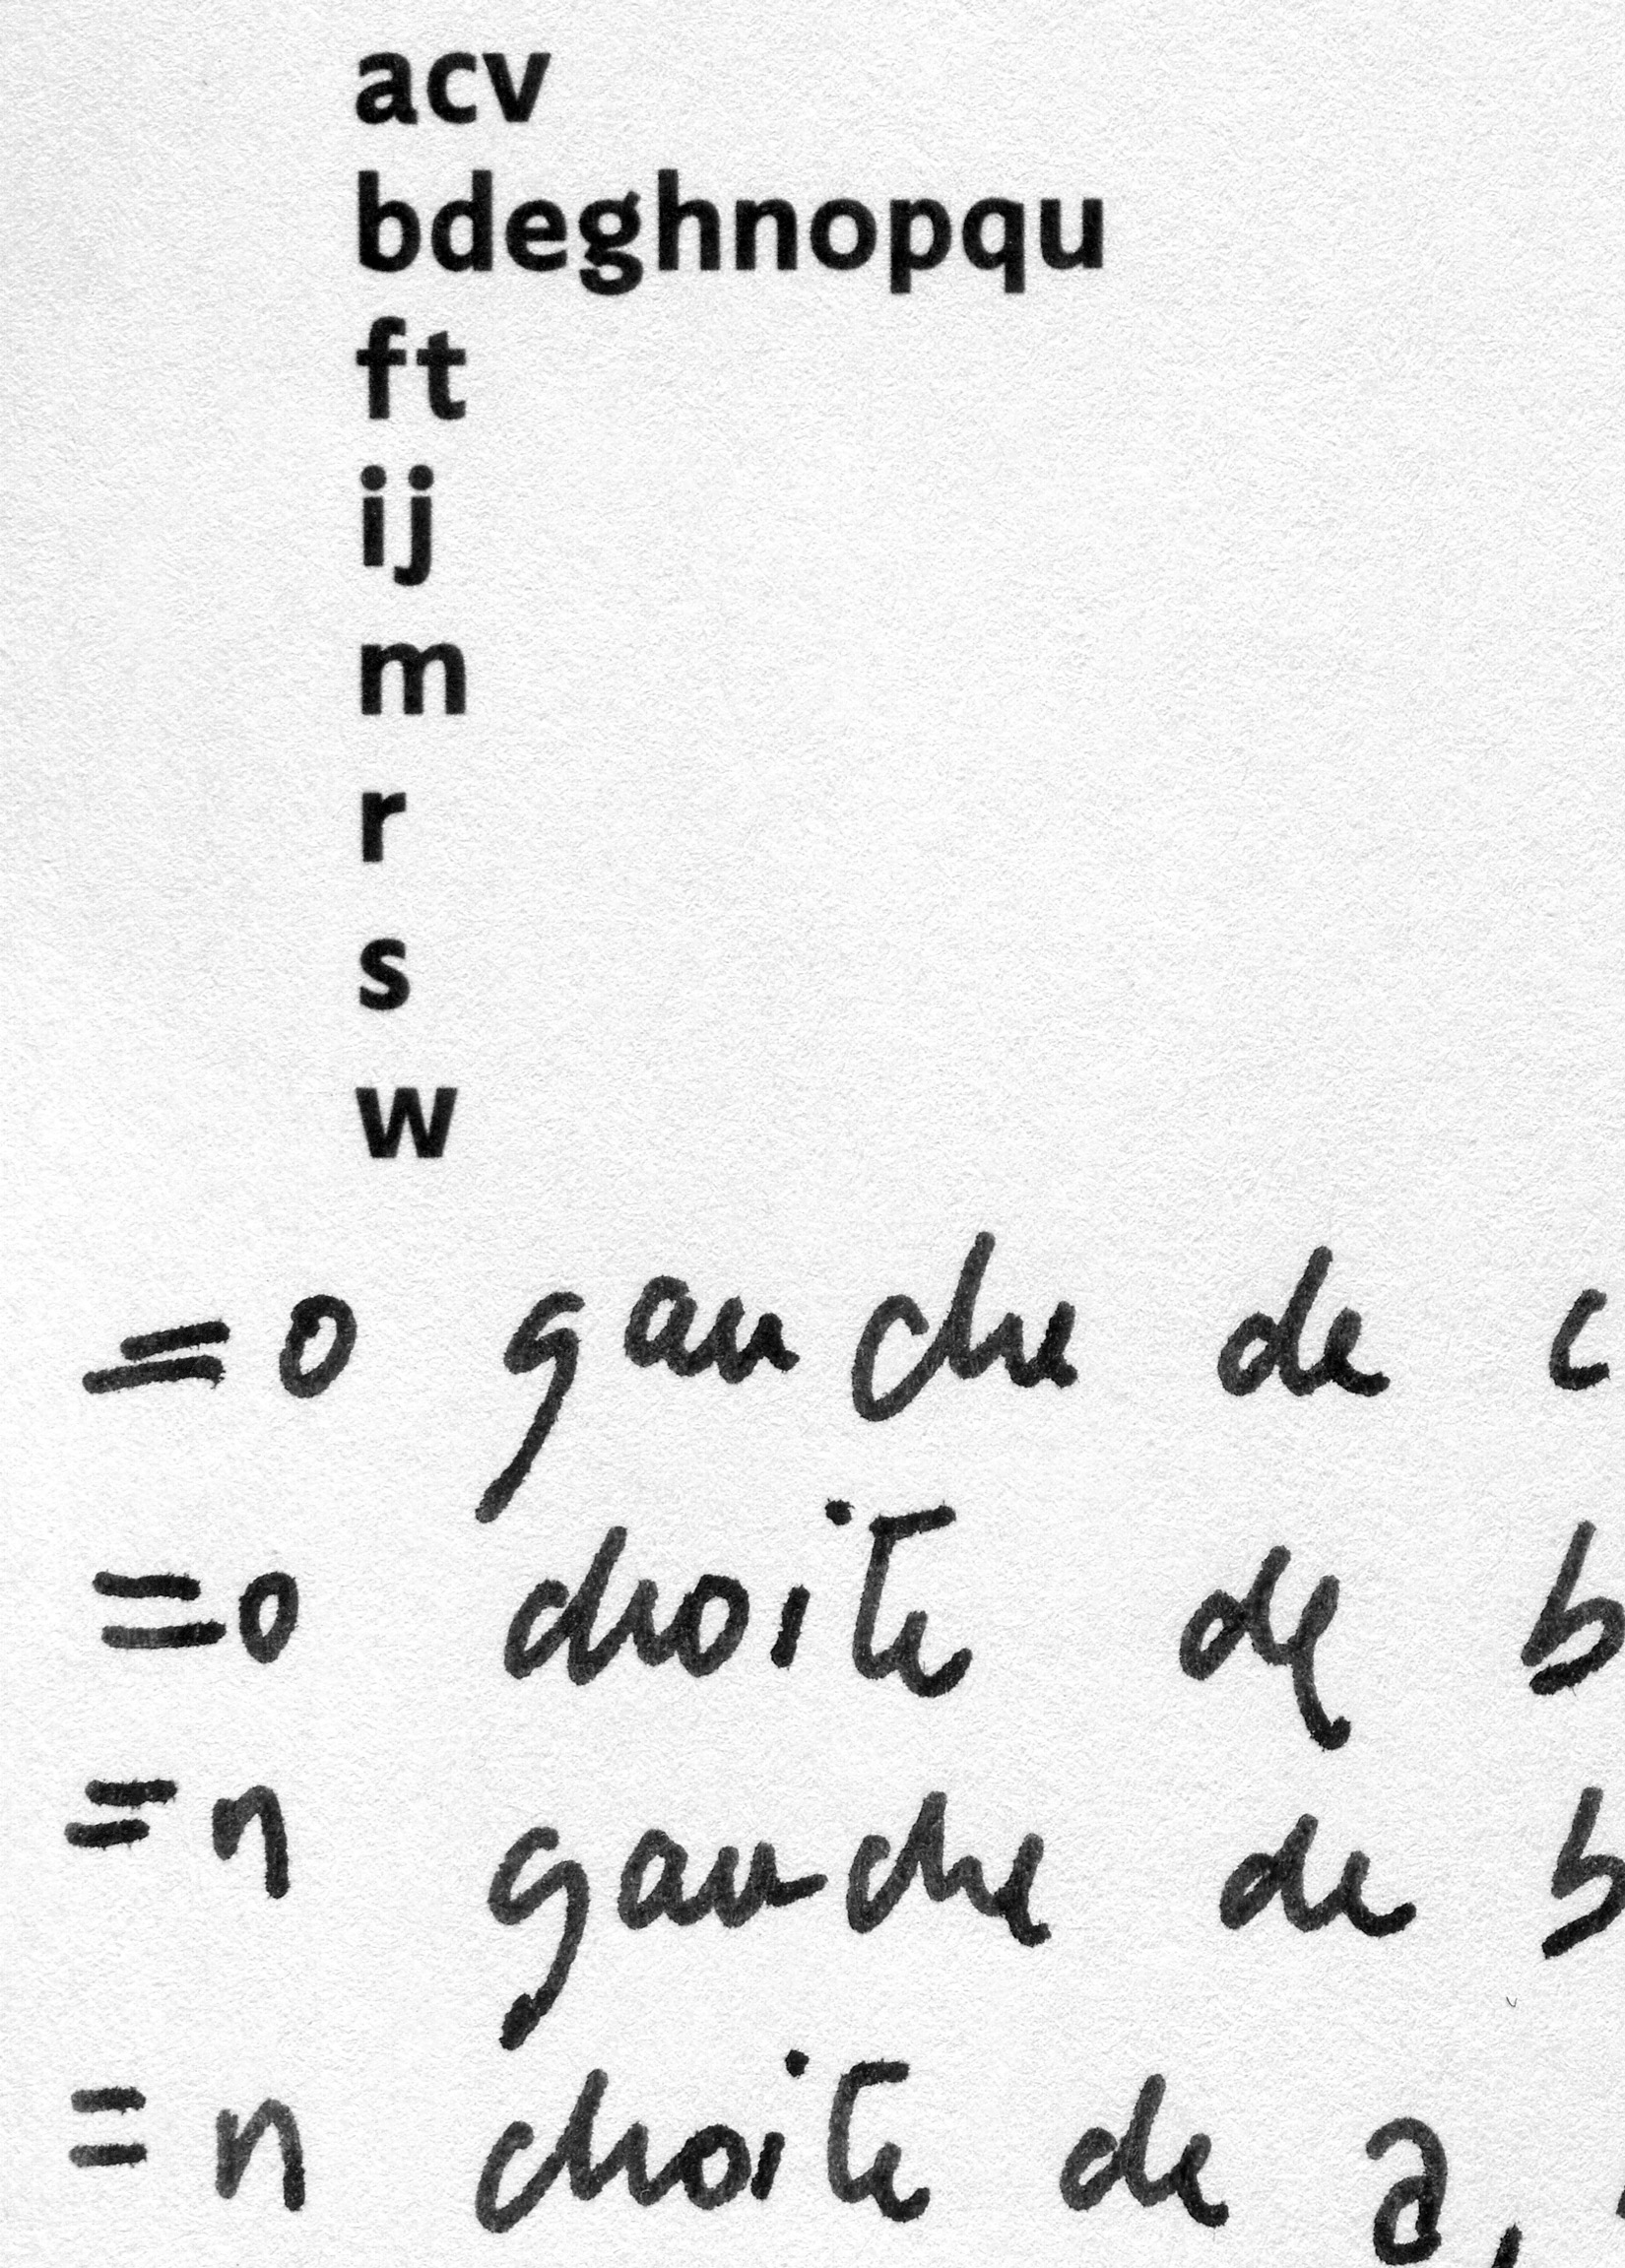 acv
bdeghnopqu
ft
ij
m
r
s
w
=o gauche de c
=o droite de b
=n gauche de b
=n droite de a,